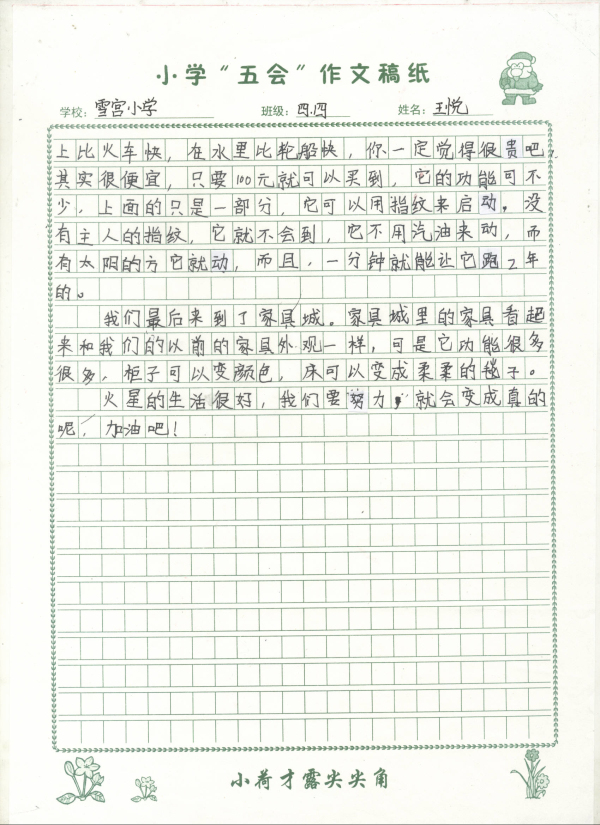 小学“五会”作文稿纸
学校：雪宫小学 班级：四.四 姓名：王悦
上比火车快，在水里比轮船快，你一定觉得很贵吧，
其实很便宜，只要100元就可以买到，它的功能可不
少，上面的只是一部分，它可以用指纹来启动，没
有主人的指纹，它就不会到，它不用汽油来动，而
有太阳的方它就动，而且，一分钟就能让它跑2年
的。
我们最后来到了家具城。家具城里的家具看起
来和我们的以前的家具外观一样，可是它功能很多
很多，柜子可以变颜色，床可以变成柔柔的毯子。
火星的生活很好，我们要努力，就会变成真的
呢，加油吧！
小荷才露尖尖角